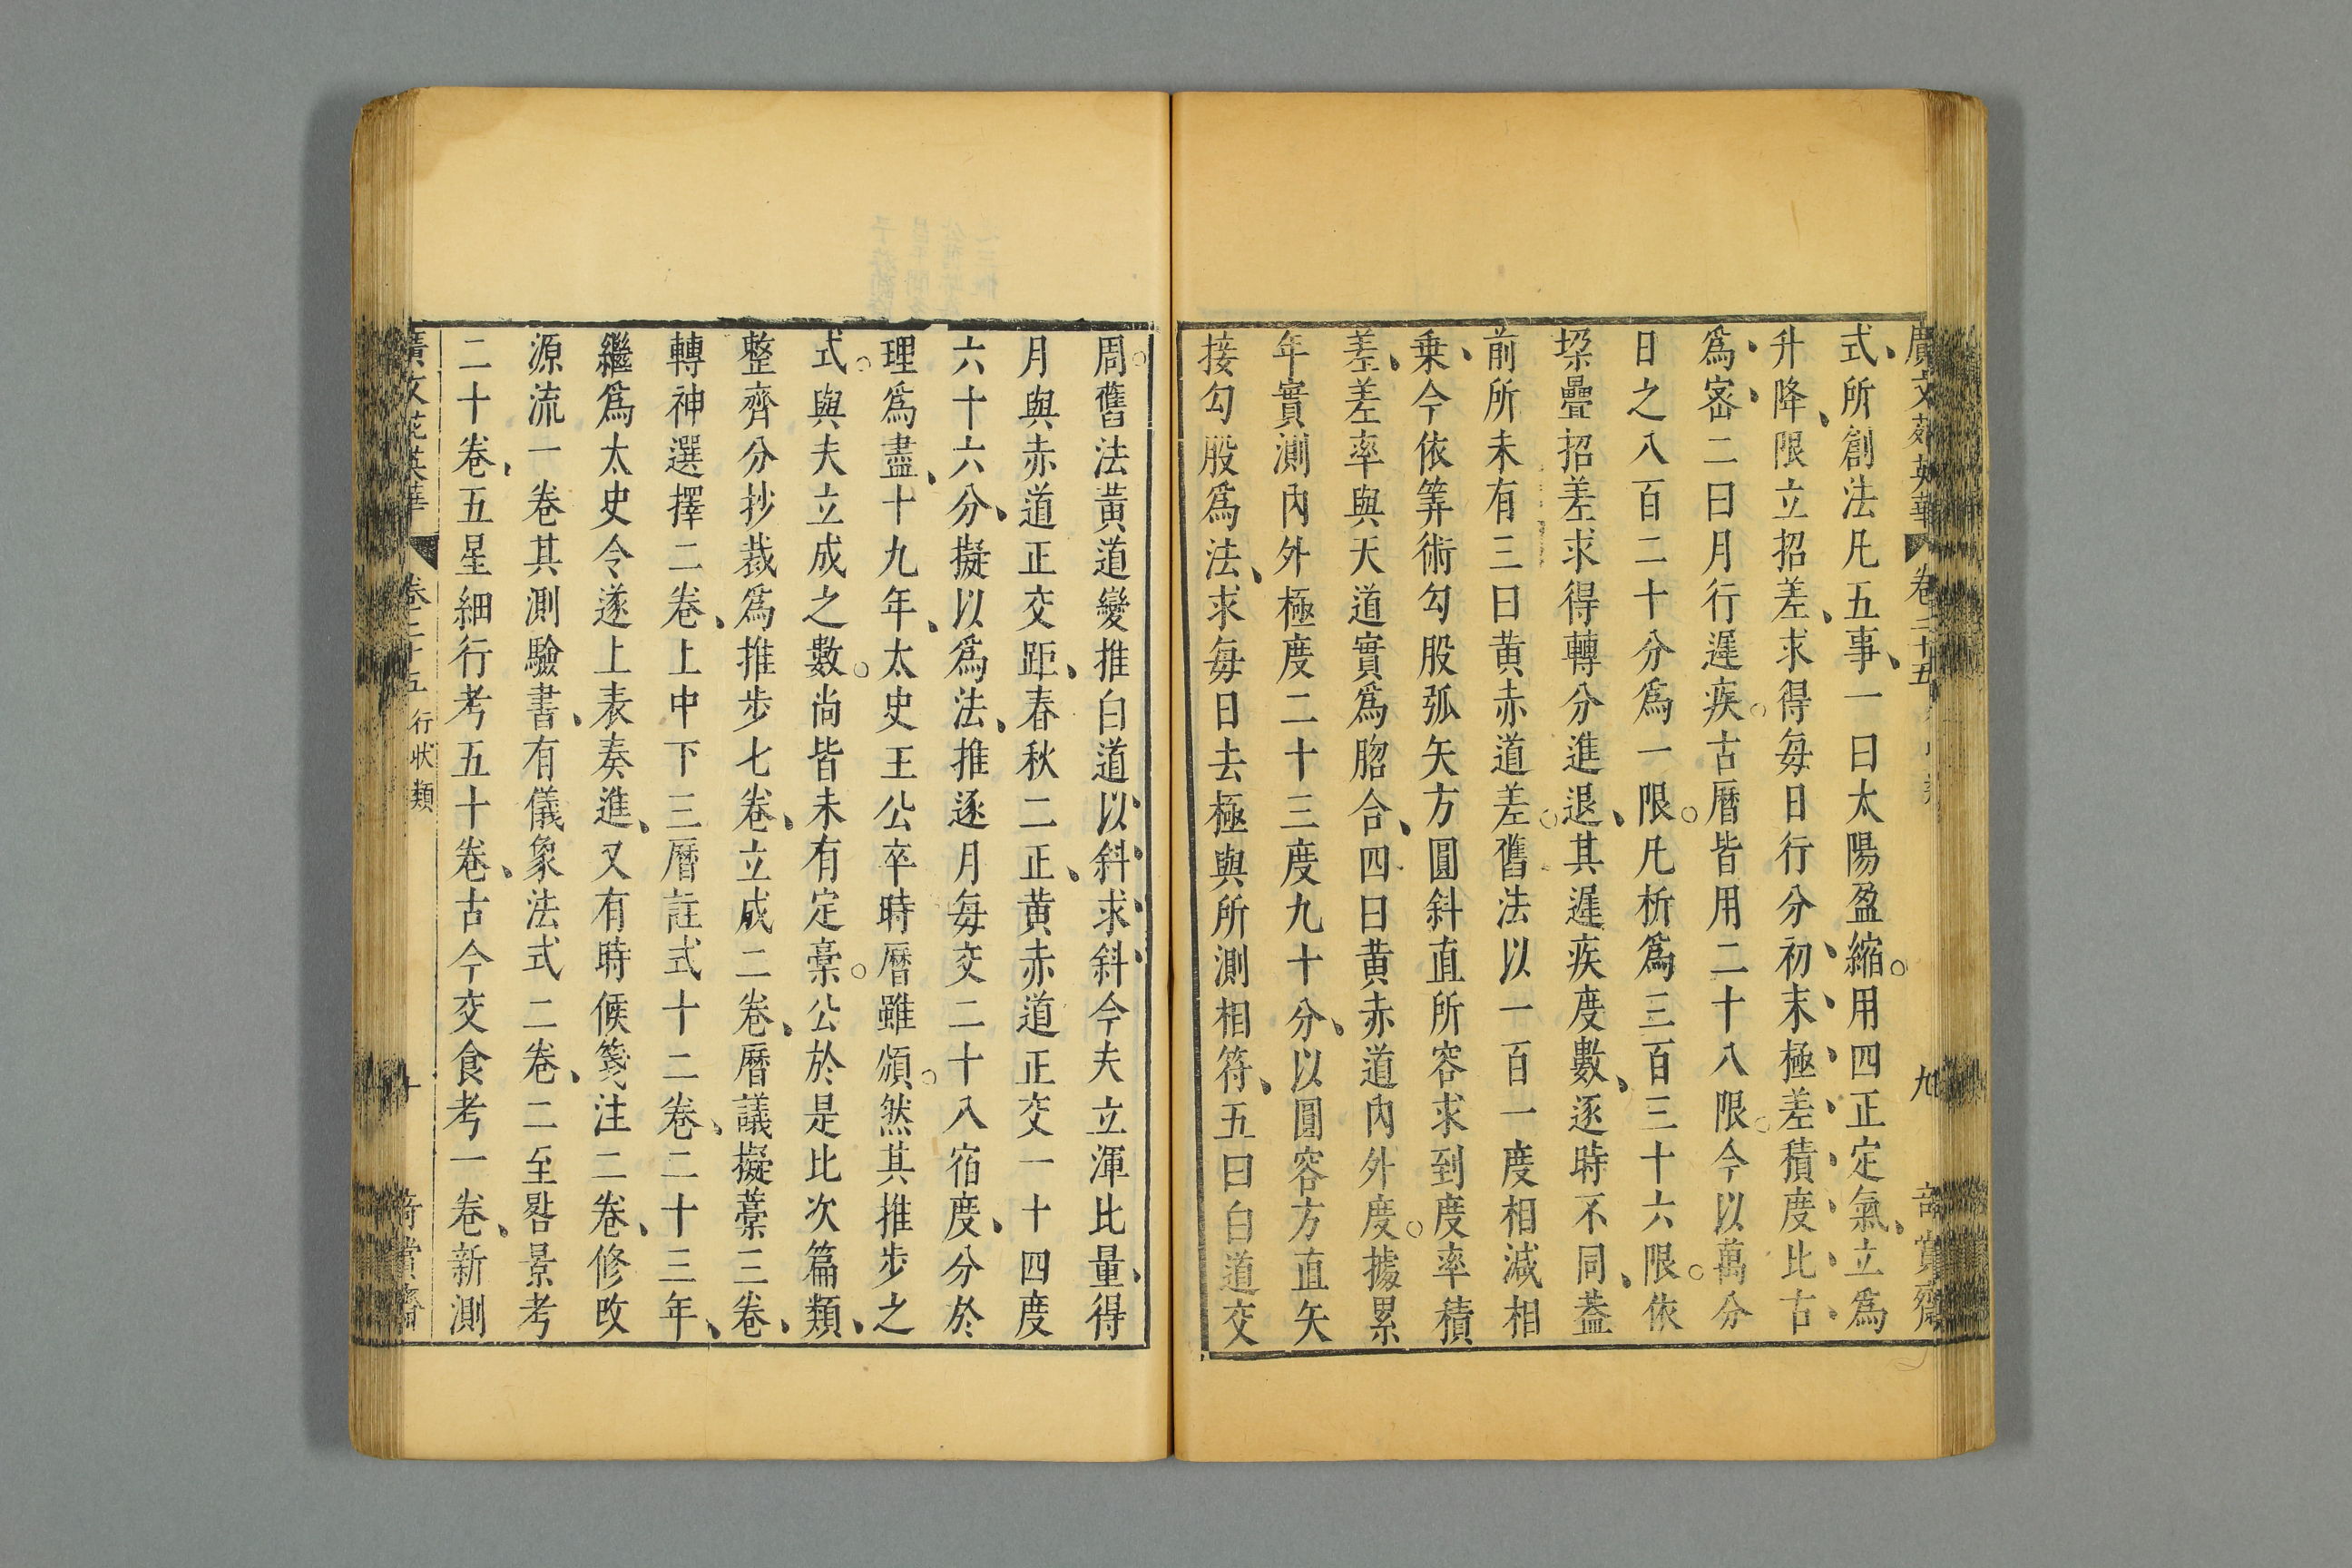 廣文苑英華 卷二十五 九
式所創法凡五事一曰太陽盈縮用四正定氣立爲
升降限立招差求得每日行分初末極差積度比古
爲宻二曰月行遲疾古曆皆用二十八限今以萬分
日之八百二十分爲一限凡析爲三百三十六限依
垜疊招差求得轉分進退其遲疾度數逐時不同葢
前所未有三曰黄赤道差舊法以一百一度相減相
乗今依筭術勾股弧矢方圓斜直所容求到度率積
差差率與天道實爲脗合四曰黄赤道內外度據累
年實測內外極度二十三度九十分以圓容方直矢
接勾股爲法求每日去極與所測相符五曰白道交
周舊法黄道變推白道以斜求斜今夫立渾比量得
月與赤道正交距春秋二正黄赤道正交一十四度
六十六分擬以爲法推逐月每交二十八宿度分於
理爲盡十九年太史王公卒時曆雖頒然其推步之
式與夫立成之數尚皆未有定藁公於是比次篇類
整齊分抄裁爲推步七卷立成二卷曆議擬藁三卷
轉神選擇二卷上中下三曆註式十二卷二十三年
繼爲太史令遂上表奏進又有時候箋注二卷修攺
源流一卷其測驗書有儀象法式二卷二至晷景考
二十卷五星細行考五十卷古今交食考一卷新測
廣文苑英華 卷二十五 行狀類 十